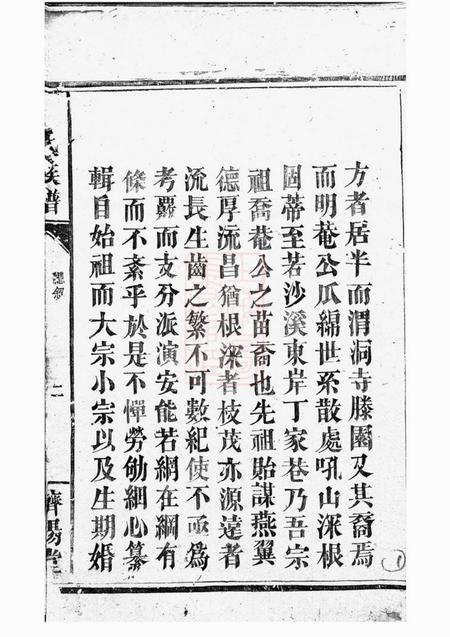 方者居半而渭洞寺滕園又其裔焉
而明菴公瓜綿世系散處吼山深根
固蒂至若沙溪東岸丁家巷乃吾宗
祖喬菴公之苗裔也先祖貽謀燕翼
德厚流昌猶根深者枝茂亦源遠者
流長生齒之繁不可數紀使不亟爲
考覈而支分派演安能若網在綱有
條而不紊乎於是不憚勞劬細心纂
輯自始祖而大宗小宗以及生期婚
氏族譜
二
濟陽堂
1